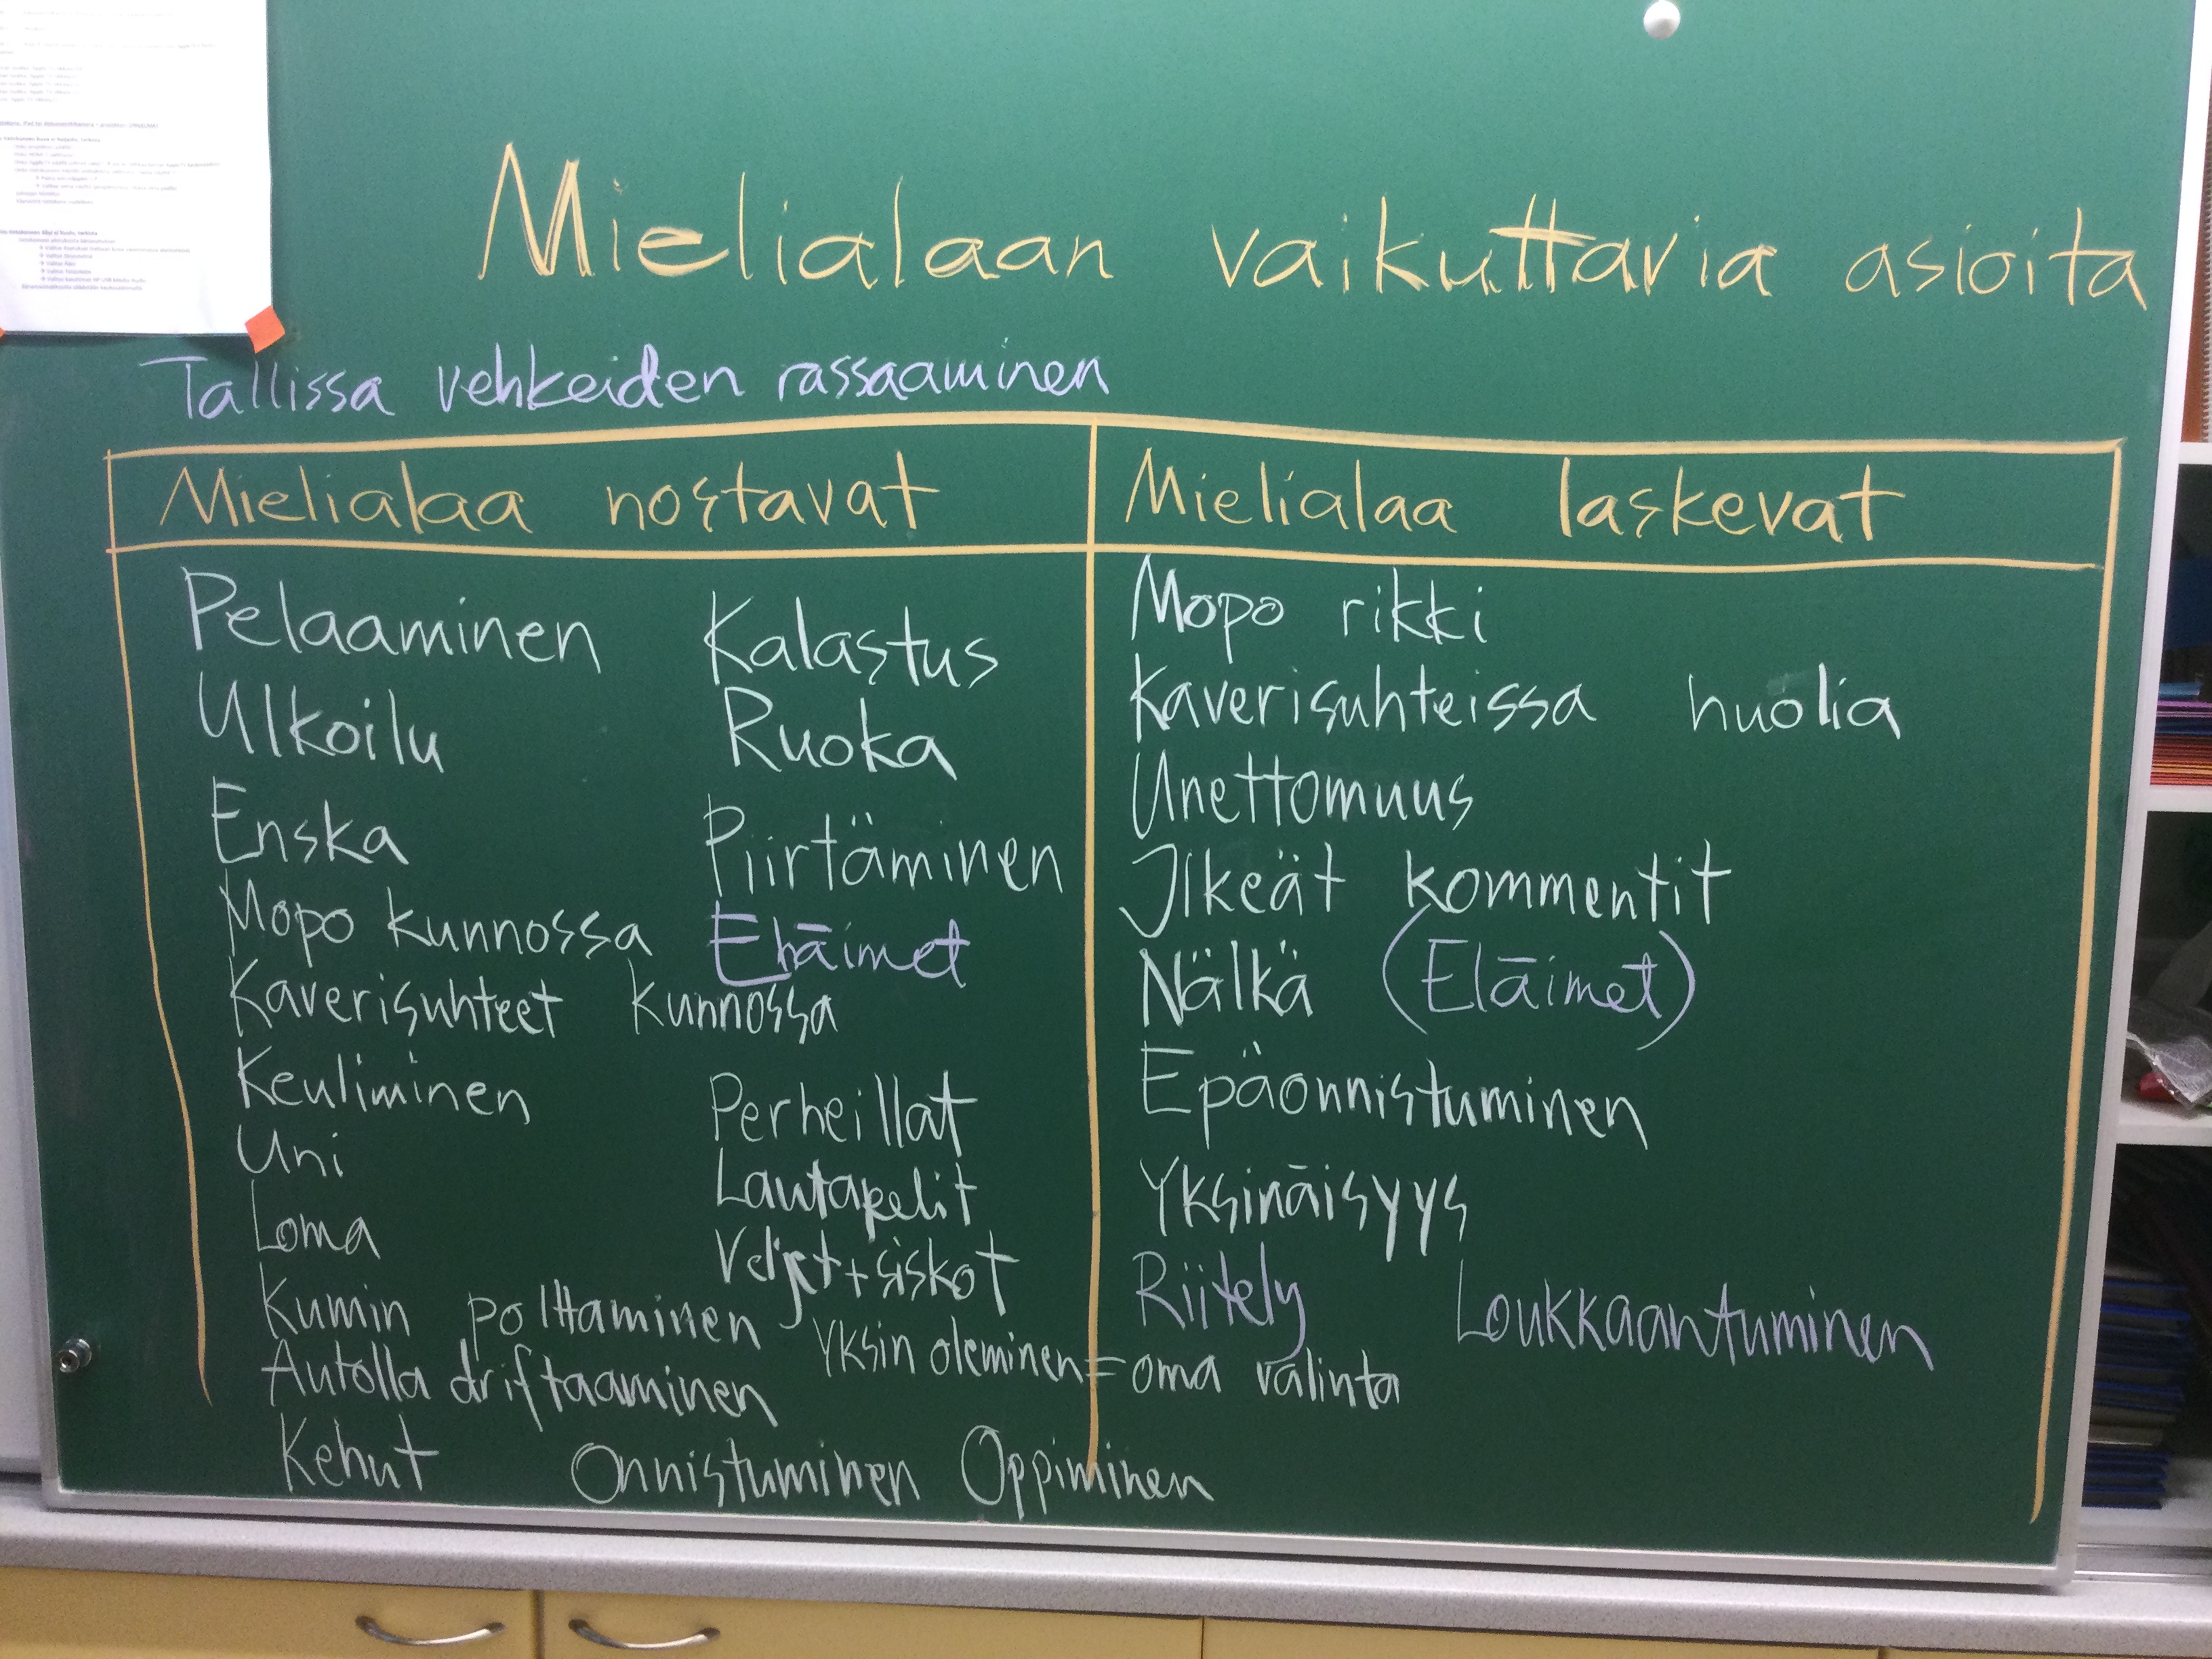 Mielialaan vaikuttavia asioita
Tallissa vehkeiden rassaaminen
Mielialaa nostavat
Pelaaminen Kalastus
Ulkoilu Ruoka
Enska Piirtäminen
Mopo kunnossa Eläimet
Kaverisuhteet kunnossa
Keuliminen Perheillat
Uni Lautapelit
Loma Veljet + siskot
Kumin polttaminen
Yksin oleminen = oma valinta
Autolla driftaaminen
Kehut Onnistuminen Oppiminen
Mielialaa laskevat
Mopo rikki
Kaverisuhteissa huolia
Unettomuus
Ilkeät kommentit
Nälkä (Eläimet)
Epäonnistuminen
Yksinäisyys
Riitely Loukkaantuminen